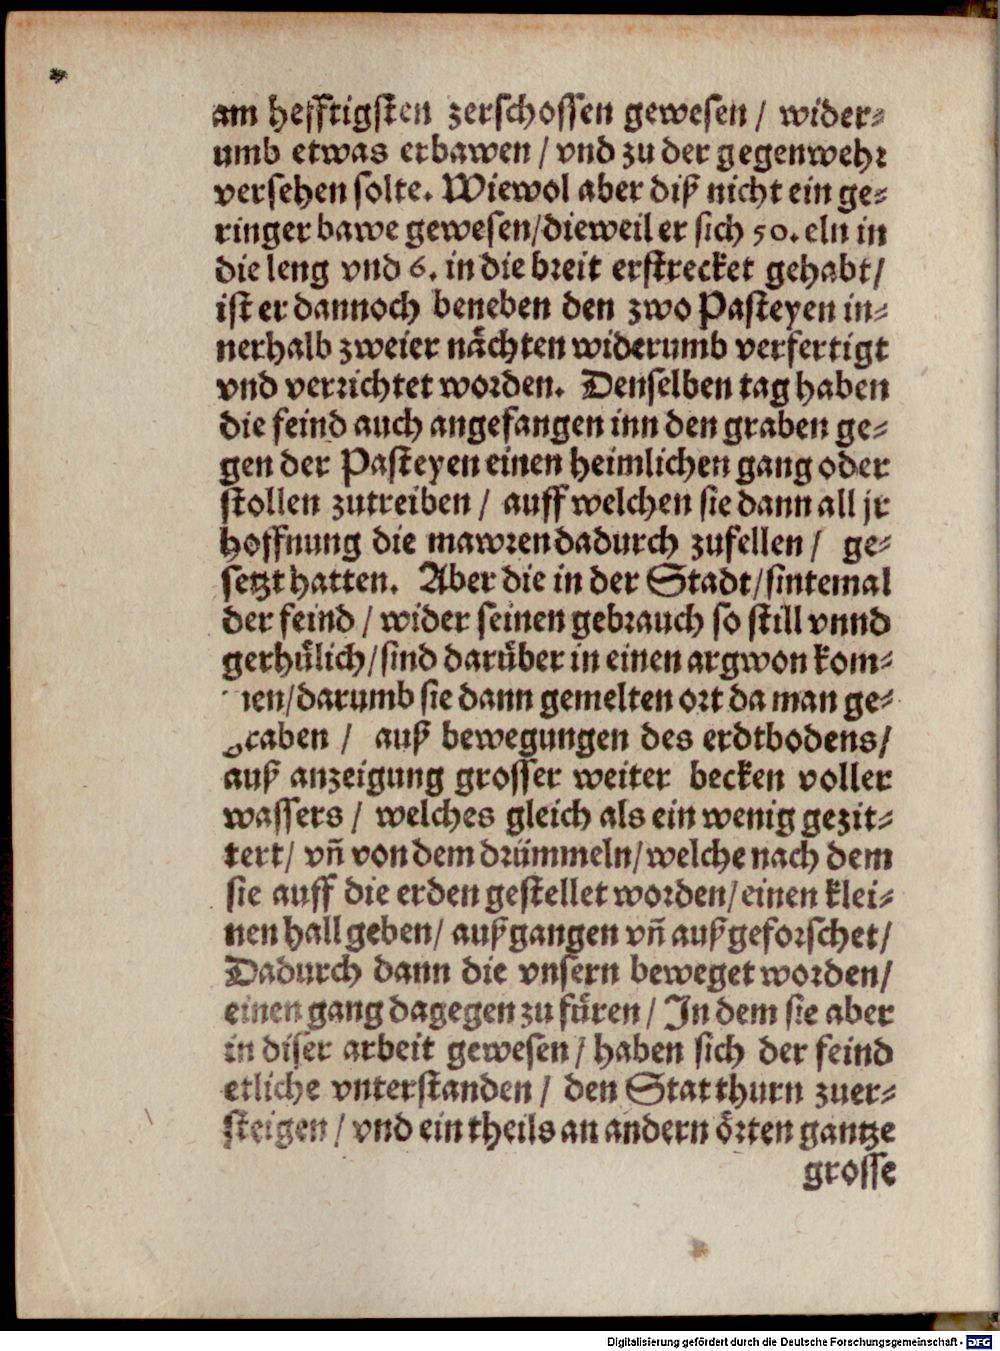 am hefftigsten zerschossen gewesen / wider-
umb etwas erbawen / vnd zu der gegenwehr
versehen solte. Wiewol aber diß nicht ein ge-
ringer bawe gewesen/dieweil er sich 50. eln in
die leng vnd 6. in die breit erstrecket gehabt/
ist er dannoch beneben den zwo Pasteyen in-
nerhalb zweier nåchten widerumb verfertigt
vnd verrichtet worden. Denselben tag haben
die feind auch angefangen inn den graben ge-
gen der Pasteyen einen heimlichen gang oder
stollen zutreiben / auff welchen sie dann all jr
hoffnung die mawren dadurch zufellen / ge-
setzt hatten. Aber die in der Stadt/sintemal
der feind / wider seinen gebrauch so still vnnd
gerhülich/sind darüber in einen argwon kom-
men/darumb sie dann gemelten ort da man ge-
graben / auß bewegungen des erdtbodens/
auß anzeigung grosser weiter becken voller
wassers / welches gleich als ein wenig gezit-
tert/ vñ von dem drümmeln/welche nach dem
sie auff die erden gestellet worden/einen klei-
nen hall geben/ außgangen vñ außgeforschet/
Dadurch dann die vnsern beweget worden/
einen gang dagegen zu füren / In dem sie aber
in diser arbeit gewesen / haben sich der feind
etliche vnterstanden / den Statthurn zuer-
steigen / vnd ein theils an andern örten gantze
grosse
Digitalisierung gefördert durch die Deutsche Forschungsgemeinschaft - DFG